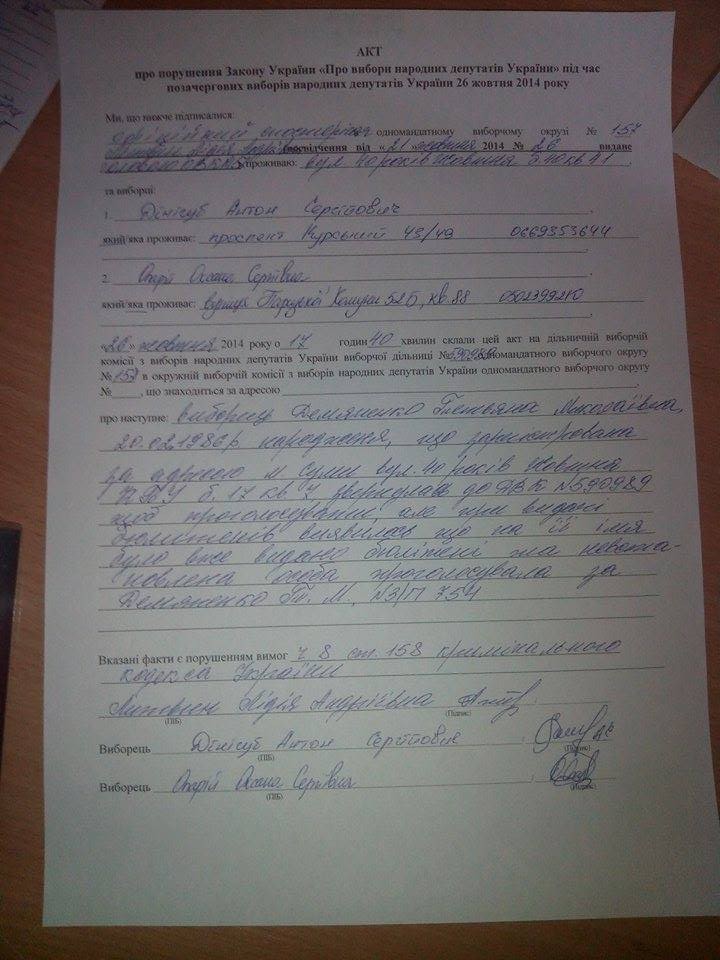 АКТ
про порушення Закону України «Про вибори народних депутатів України» під час
позачергових виборів народних депутатів України 26 жовтня 2014 року
Ми, що нижче підписалися:
офіційний спостерігач одномандатному виборчому окрузі № 157
Лідія посвідчення від «21» жовтня 2014 № 26 видане
головою проживаю: вул 40 років Жовтня б.40 кв 41
та виборці:
1. Антон Сергійович
який/яка проживає: проспект Курський 43/49 0669353644
2. Оксана Сергіївна
який/яка проживає: вулиця Паризької Комуни 52Б, кв.88 0502399210
«26» жовтня 2014 року о 17 годин 40 хвилин склали цей акт на дільничній виборчій
комісії з виборів народних депутатів України виборчої дільниці №590989 одномандатного виборчого округу
№157 в окружній виборчій комісії з виборів народних депутатів України одномандатного виборчого округу
№, що знаходиться за адресою
про наступне: виборець Демяненко Тетьяна Миколаївна,
20.02.1986р народження, що зареєстрована
за адресою м Суми вул. 40 років Жовтня
б. 17 кв. 7, звернулась до ДВК N590989
щоб проголосувати, але при видачі
бюлетенів виявилось що на її імя
було вже видано бюлетені та невста-
новлена особа проголосувала за
Демяненко Т. М. N3/П 754
Вказані факти є порушенням вимог ч 8 ст. 158 кримінального
кодекса України
Лідія Андріївна
(ПІБ) (Підпис)
Виборець Антон Сергійович
(ПІБ) (Підпис)
Виборець Оксана Сергіївна
(ПІБ) (Підпис)